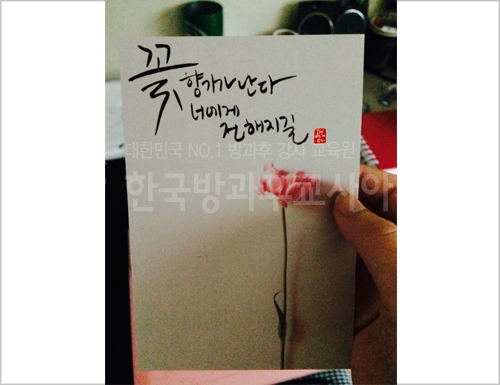 꽃
향기가 난다
너에게
전해지길
대한민국 NO.1 방과후 강사 교육원
한국방과후교사아